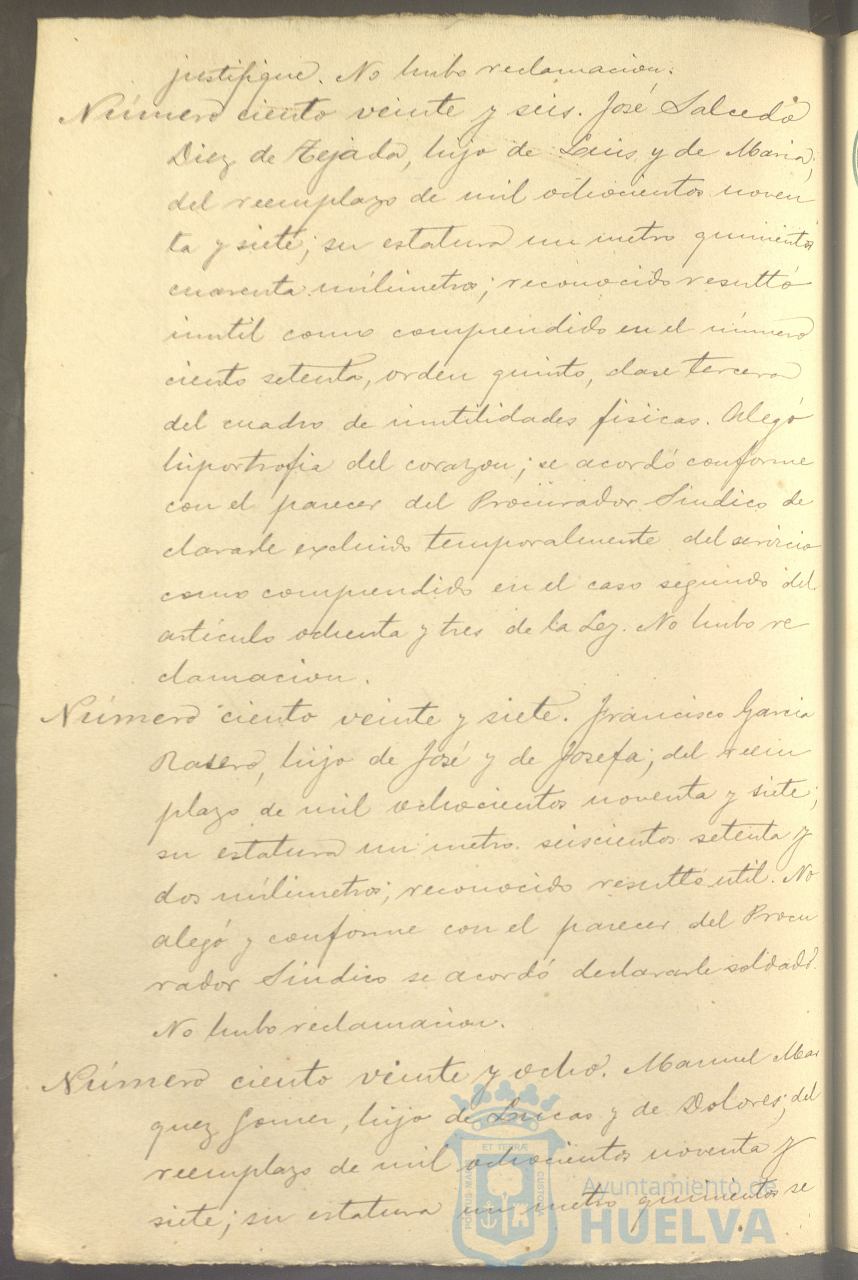 justifique. No hubo reclamacion.
Número ciento veinte y seis. José Salcedo
Diez de Tejada, hijo de Luis y de Maria,
del reemplazo de mil ochocientos noven
ta y siete; su estatura un metro quinientos
cuarenta milimetros; reconocido resultó
inutil como comprendido en el número
ciento setenta, orden quinto, clase tercera
del cuadro de inutilidades fisicas. Alegó
hiportrofia del corazon; se acordó conforme
con el parecer del Procurador Sindico de
clararle excluido temporalmente del servicio
como comprendido en el caso segundo del
artículo ochenta y tres de la Ley. No hubo re
clamacion.
Número ciento veinte y siete. Francisco Garcia
Rasero, hijo de José y de Josefa; del reem
plazo de mil ochocientos noventa y siete;
su estatura un metro seiscientos setenta y
dos milimetros; reconocido resultó util. No
alegó y conforme con el parecer del Procu
rador Sindico se acordó declararle soldado.
No hubo reclamacion.
Número ciento veinte y ocho. Manuel Mar
quez Gomez, hijo de Lucas y de Dolores; del
reemplazo de mil ochocientos noventa y
siete; su estatura un metro quinientos se
PORTUS MARIS ET TERRÆ CUSTODIA
Ayuntamiento de
HUELVA